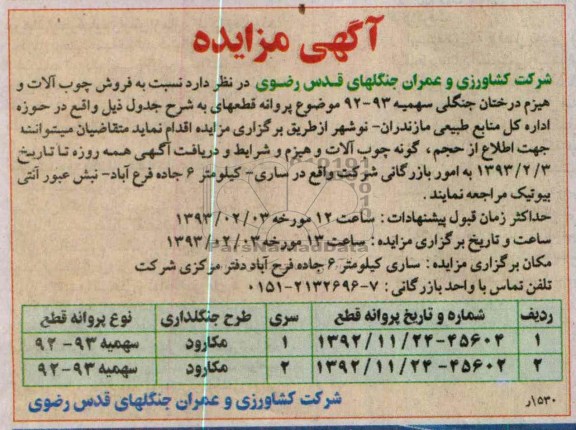 آگهی مزایده
شرکت کشاورزی و عمران جنگلهای قدس رضوی در نظر دارد نسبت به فروش چوب آلات و
هیزم درختان جنگلی سهمیه ۹۳-۹۲ موضوع پروانه قطعهای به شرح جدول ذیل واقع در حوزه
اداره کل منابع طبیعی مازندران- نوشهر ازطریق برگزاری مزایده اقدام نماید متقاضیان میتوانند
جهت اطلاع از حجم ، گونه چوب آلات و هیزم و شرایط و دریافت آگهی همه روزه تا تاریخ
۱۳۹۳/۲/۳ به امور بازرگانی شرکت واقع در ساری- کیلومتر ۶ جاده فرع آباد- نبش عبور آنتی
بیوتیک مراجعه نمایند.
حداکثر زمان قبول پیشنهادات : ساعت ۱۲ مورخه ۱۳۹۳/۰۲/۰۳
ساعت و تاریخ برگزاری مزایده : ساعت ۱۳ مورخه ۱۳۹۳/۰۲/۰۳
ParsNamadData
مکان برگزاری مزایده : ساری کیلومتر ۶ جاده فرح آباد دفتر مرکزی شرکت
تلفن تماس با واحد بازرگانی : ۷-۲۱۳۲۶۹۶-۰۱۵۱
ردیف شماره و تاریخ پروانه قطع سری طرح جنگلداری نوع پروانه قطع
۱ ۴۵۶۰۴-۱۳۹۲/۱۱/۲۴ ۱ مکارود سهمیه ۹۳- ۹۲
۲ ۴۵۶۰۲- ۱۳۹۲/۱۱/۲۴ ۲ مکارود سهمیه ۹۳-۹۲
شرکت کشاورزی و عمران جنگلهای قدس رضوی
۱۵۳۰ر